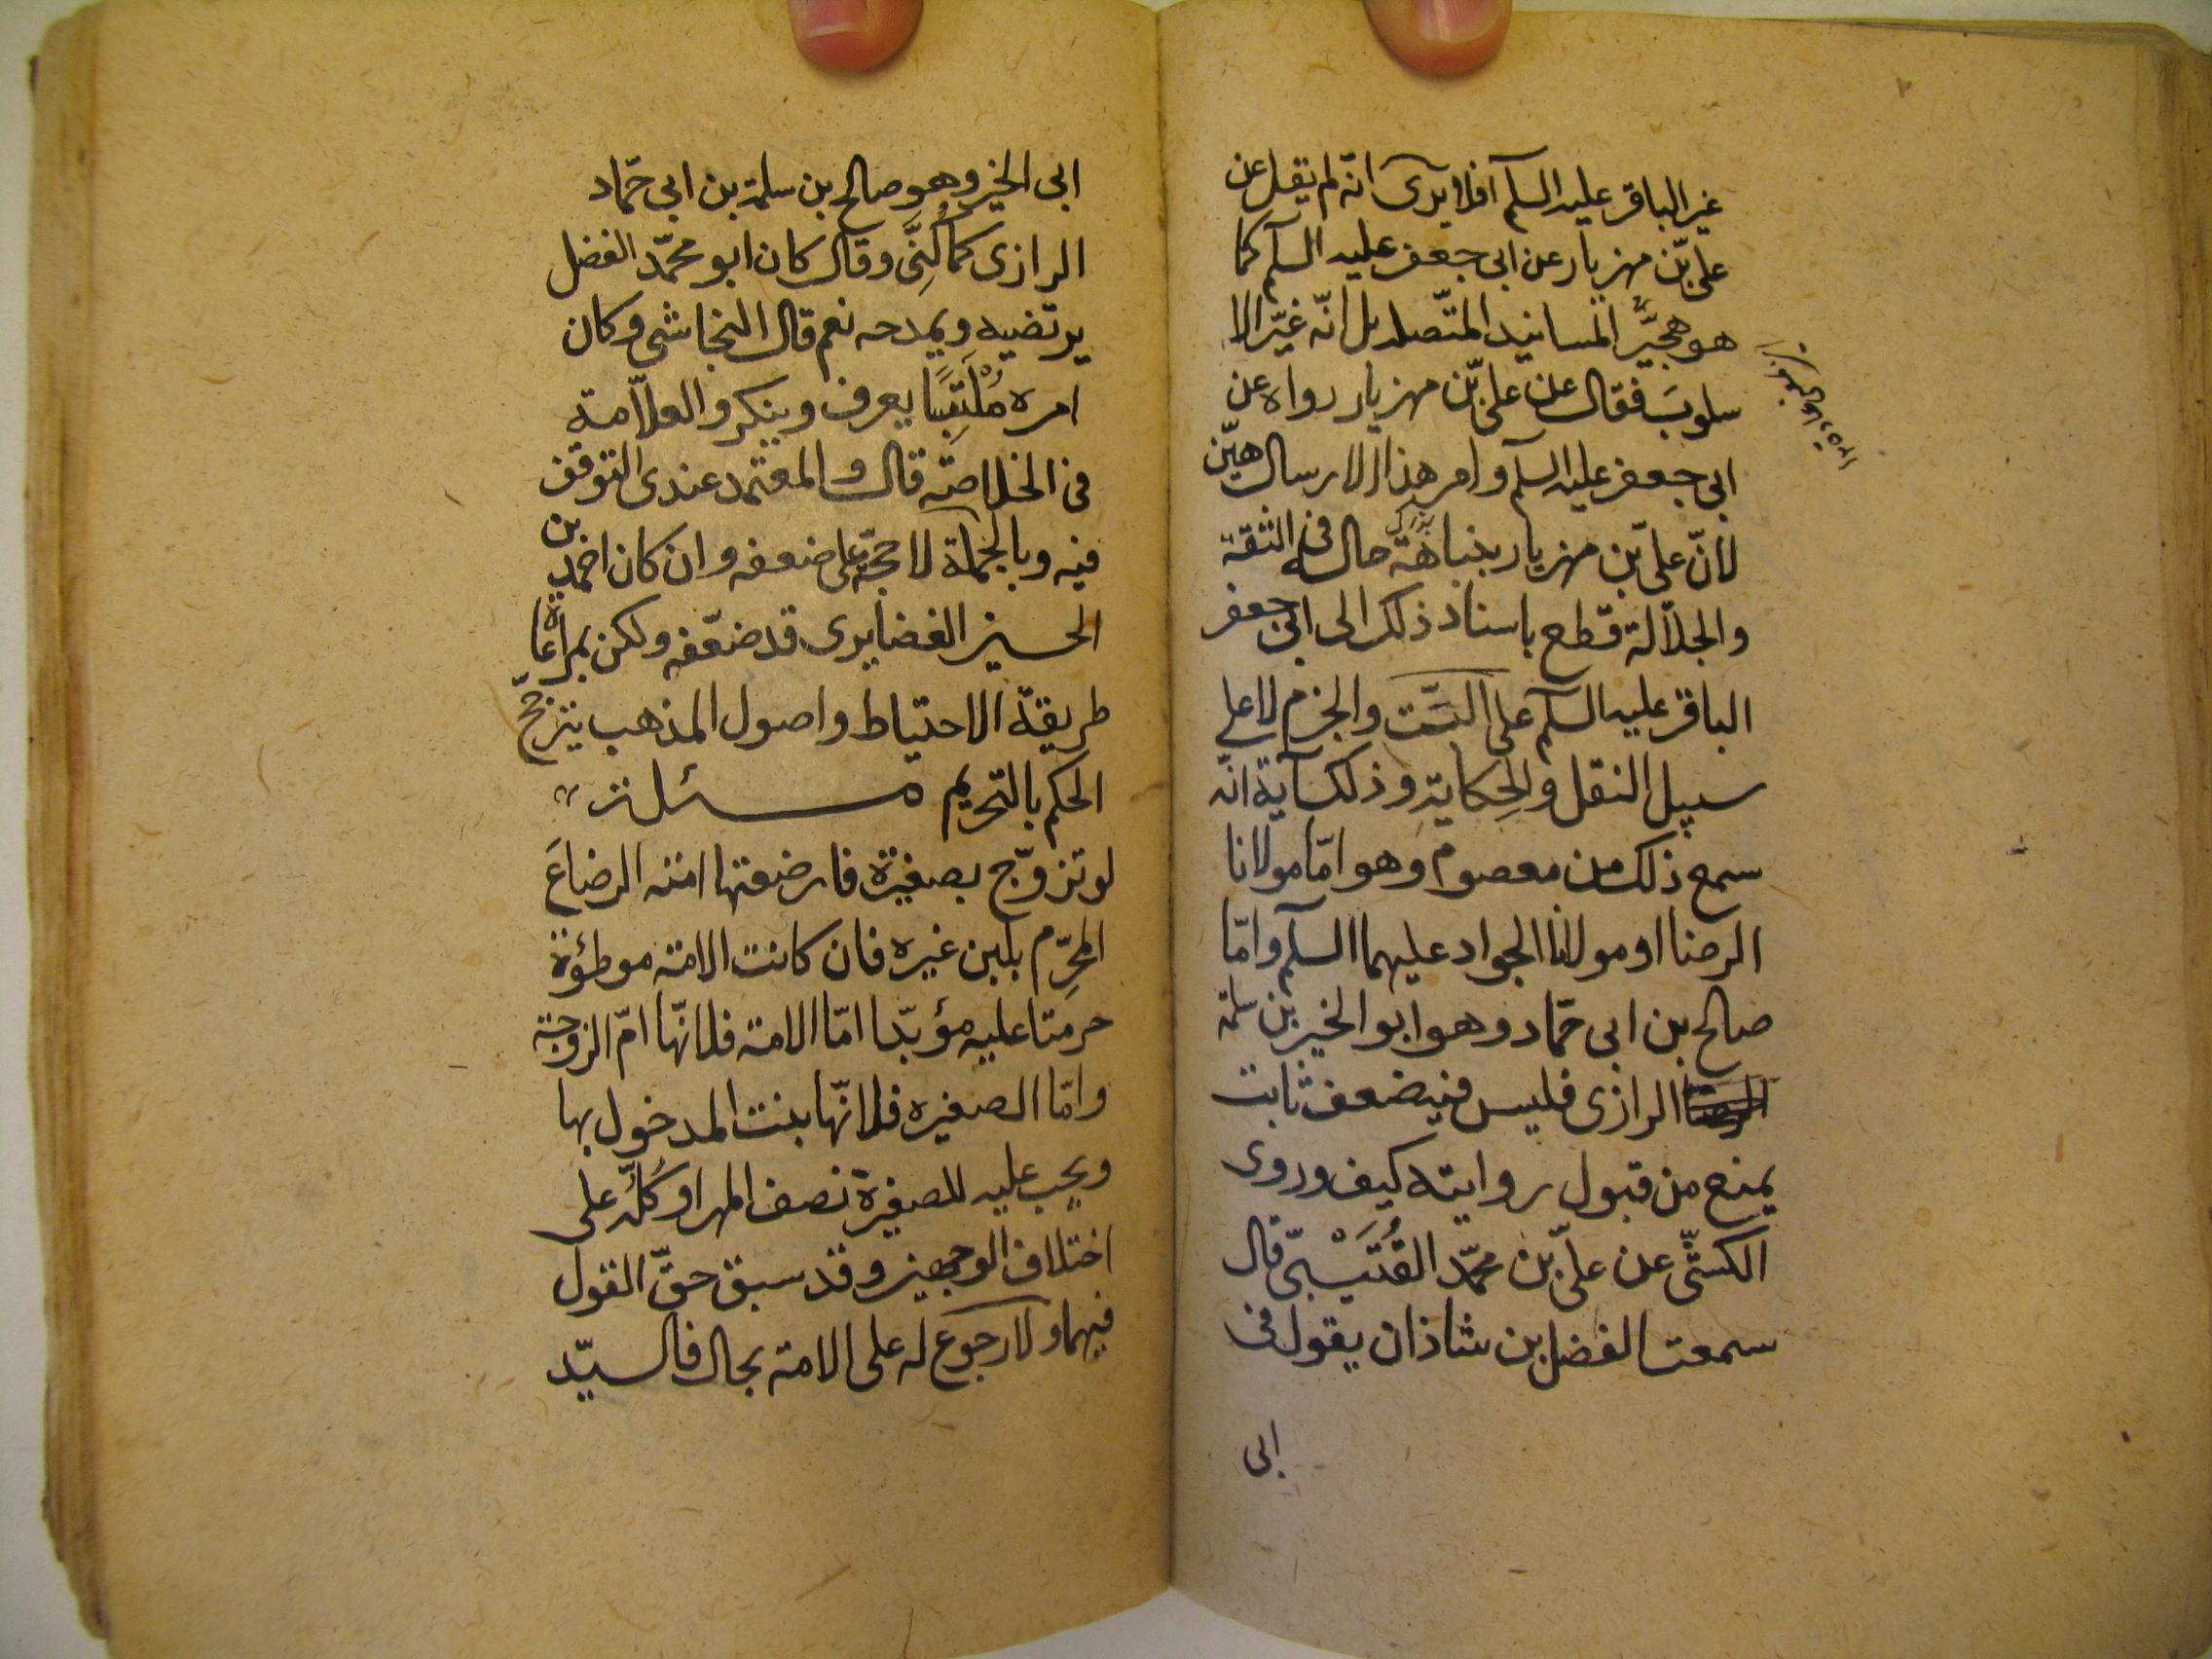 غير الباقر عليه السلم افلا يرى انّه لم يقل عن
علىّ بن مهزيار عن ابى جعفر عليه السلم كما
هو هجيّر المسانيد المتّصله بل انّه غيّر الا
سلوبَ فقال عن علىّ بن مهزيار رواه عن
ابى جعفر عليه السلم وامر هذا الارسال هيّن
لانّ علىّ بن مهزيار بنباهة حاله فى الثقة
والجلالة قطع باسناد ذلك الى ابى جعفر
الباقر عليه السلم على البتّ والجزم لا على
سبيل النقل والحِكاية وذلك آية انّه
سمع ذلك من معصوم وهو امّا مولانا
الرضا او مولانا الجواد عليهما السلم وامّا
صالح بن ابى حمّاد وهو ابو الخير بن سلمة
الرازى فليس فيه ضعف ثابت
يمنع من قبول روايته كيف وروى
الكشّى عن علىّ بن محمّد القُتَيْبىّ قال
سمعت الفضل بن شاذان يقول فى
ابى
ابى الخير وهو صالح بن سلمة بن ابى حمّاد
الرازى كما كُنِّىَ وقال كان ابو محمّد الفضل
يرتضيه ويمدحه نعم قال النجاشى وكان
امره مُلْتَبِسًا يعرف وينكر والعلاّمة
فى الخلاصة قال والمعتمد عندى التوقف
فيه وبالجملة لا حجّة على ضعفه وان كان احمد بن
الحسين الغضايرى قد ضعّفه ولكن بمراعاة
طريقة الاحتياط واصول المذهب يترجّح
الحكم بالتحريم مسئلة
لو تزوّج بصغيرة فارضعتها امته الرضاعَ
المحرِّم بلبن غيره فان كانت الامة موطؤة
حرمتا عليه مؤبّدا امّا الامة فلانّها امّ الزوجة
وامّا الصغيره فلانّها بنت المدخول بها
ويجب عليه للصغيرة نصف المهر او كلّه على
اختلاف الوجهين وقد سبق حقّ القول
فيهما ولا رجوع له على الامة بحال قال السيّد